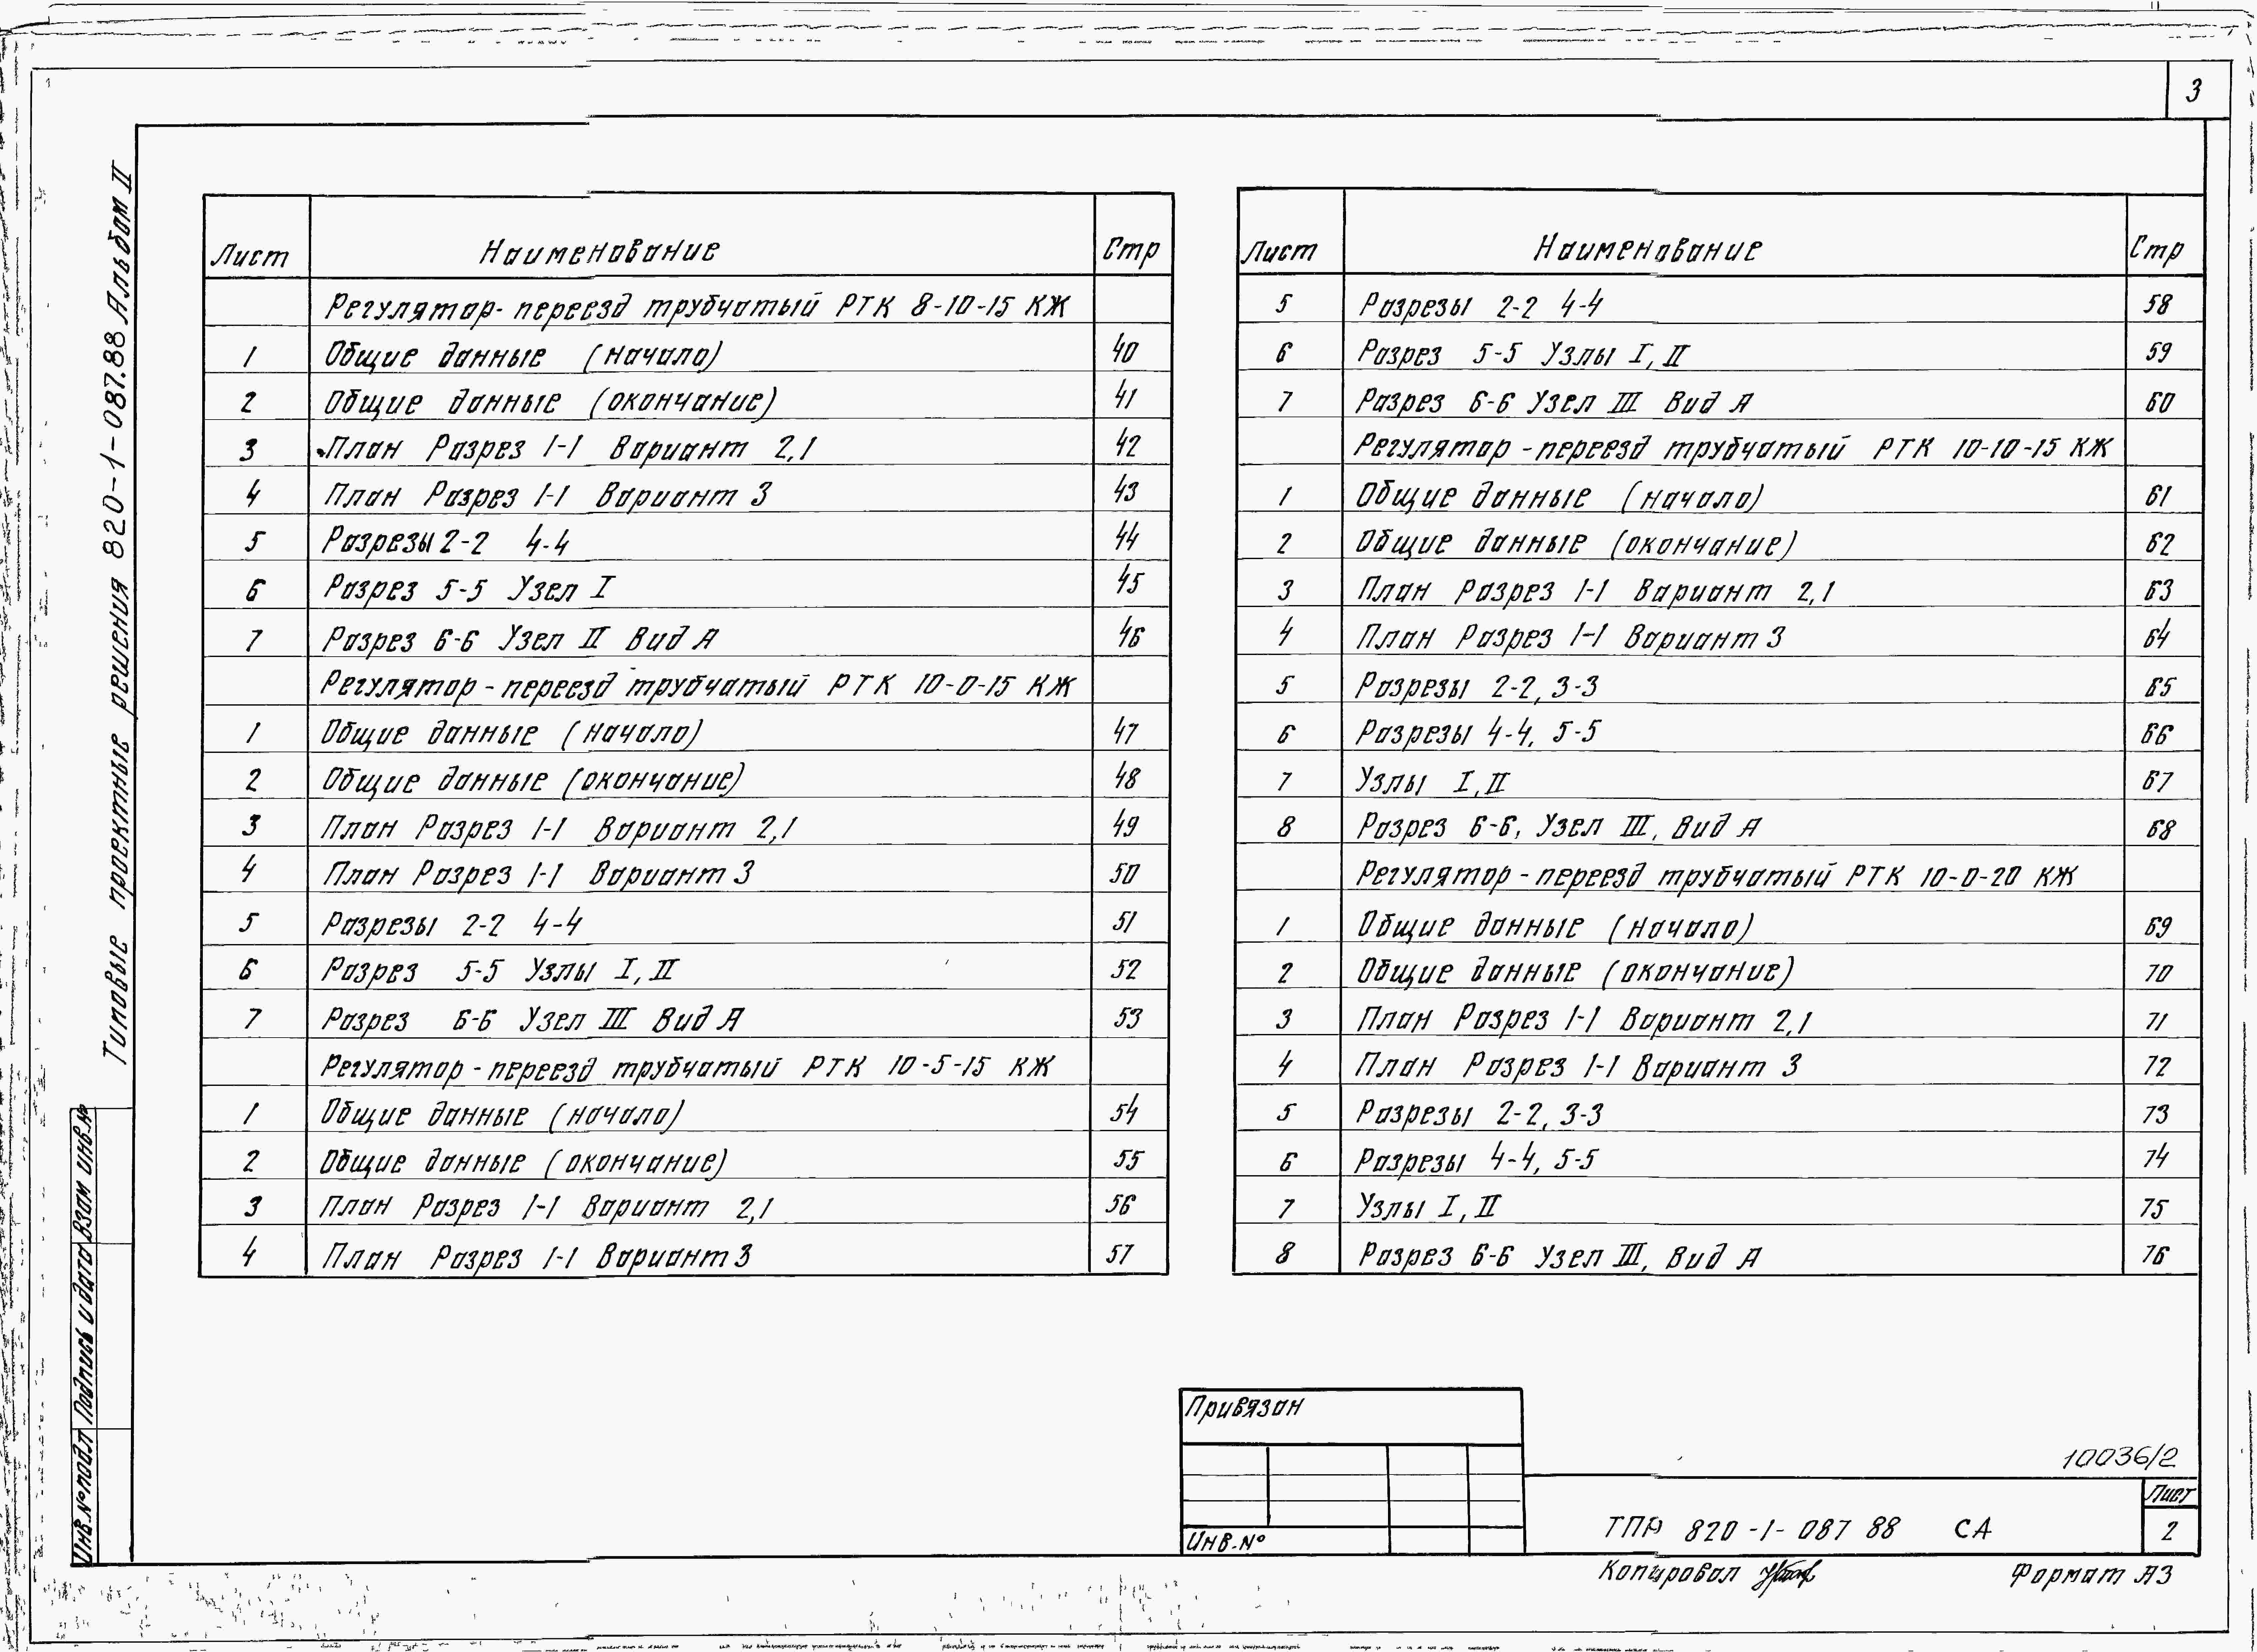 3
Типовые проектные решения 820-1-087.88 Альбом II
Лист Наименование Стр
Регулятор-переезд трубчатый РТК 8-10-15 КЖ
1 Общие данные (начало) 40
2 Общие данные (окончание) 41
3 План Разрез 1-1 Вариант 2,1 42
4 План Разрез 1-1 Вариант 3 43
5 Разрезы 2-2 4-4 44
6 Разрез 5-5 Узел I 45
7 Разрез 6-6 Узел II Вид А 46
Регулятор-переезд трубчатый РТК 10-0-15 КЖ
1 Общие данные (начало) 47
2 Общие данные (окончание) 48
3 План Разрез 1-1 Вариант 2,1 49
4 План Разрез 1-1 Вариант 3 50
5 Разрезы 2-2 4-4 51
6 Разрез 5-5 Узлы I, II 52
7 Разрез 6-6 Узел III Вид А 53
Регулятор-переезд трубчатый РТК 10-5-15 КЖ
1 Общие данные (начало) 54
2 Общие данные (окончание) 55
3 План Разрез 1-1 Вариант 2,1 56
4 План Разрез 1-1 Вариант 3 57
Лист Наименование Стр
5 Разрезы 2-2 4-4 58
6 Разрез 5-5 Узлы I, II 59
7 Разрез 6-6 Узел III Вид А 60
Регулятор-переезд трубчатый РТК 10-10-15 КЖ
1 Общие данные (начало) 61
2 Общие данные (окончание) 62
3 План Разрез 1-1 Вариант 2,1 63
4 План Разрез 1-1 Вариант 3 64
5 Разрезы 2-2, 3-3 65
6 Разрезы 4-4, 5-5 66
7 Узлы I, II 67
8 Разрез 6-6, Узел III, Вид А 68
Регулятор-переезд трубчатый РТК 10-0-20 КЖ
1 Общие данные (начало) 69
2 Общие данные (окончание) 70
3 План Разрез 1-1 Вариант 2,1 71
4 План Разрез 1-1 Вариант 3 72
5 Разрезы 2-2, 3-3 73
6 Разрезы 4-4, 5-5 74
7 Узлы I, II 75
8 Разрез 6-6 Узел III, Вид А 76
Инв.№подл Подпись и дата Взам инв.№
Привязан
Инв.№
10036/2
ТПР 820-1-087 88 СА
Лист
2
Копировал
Формат А3